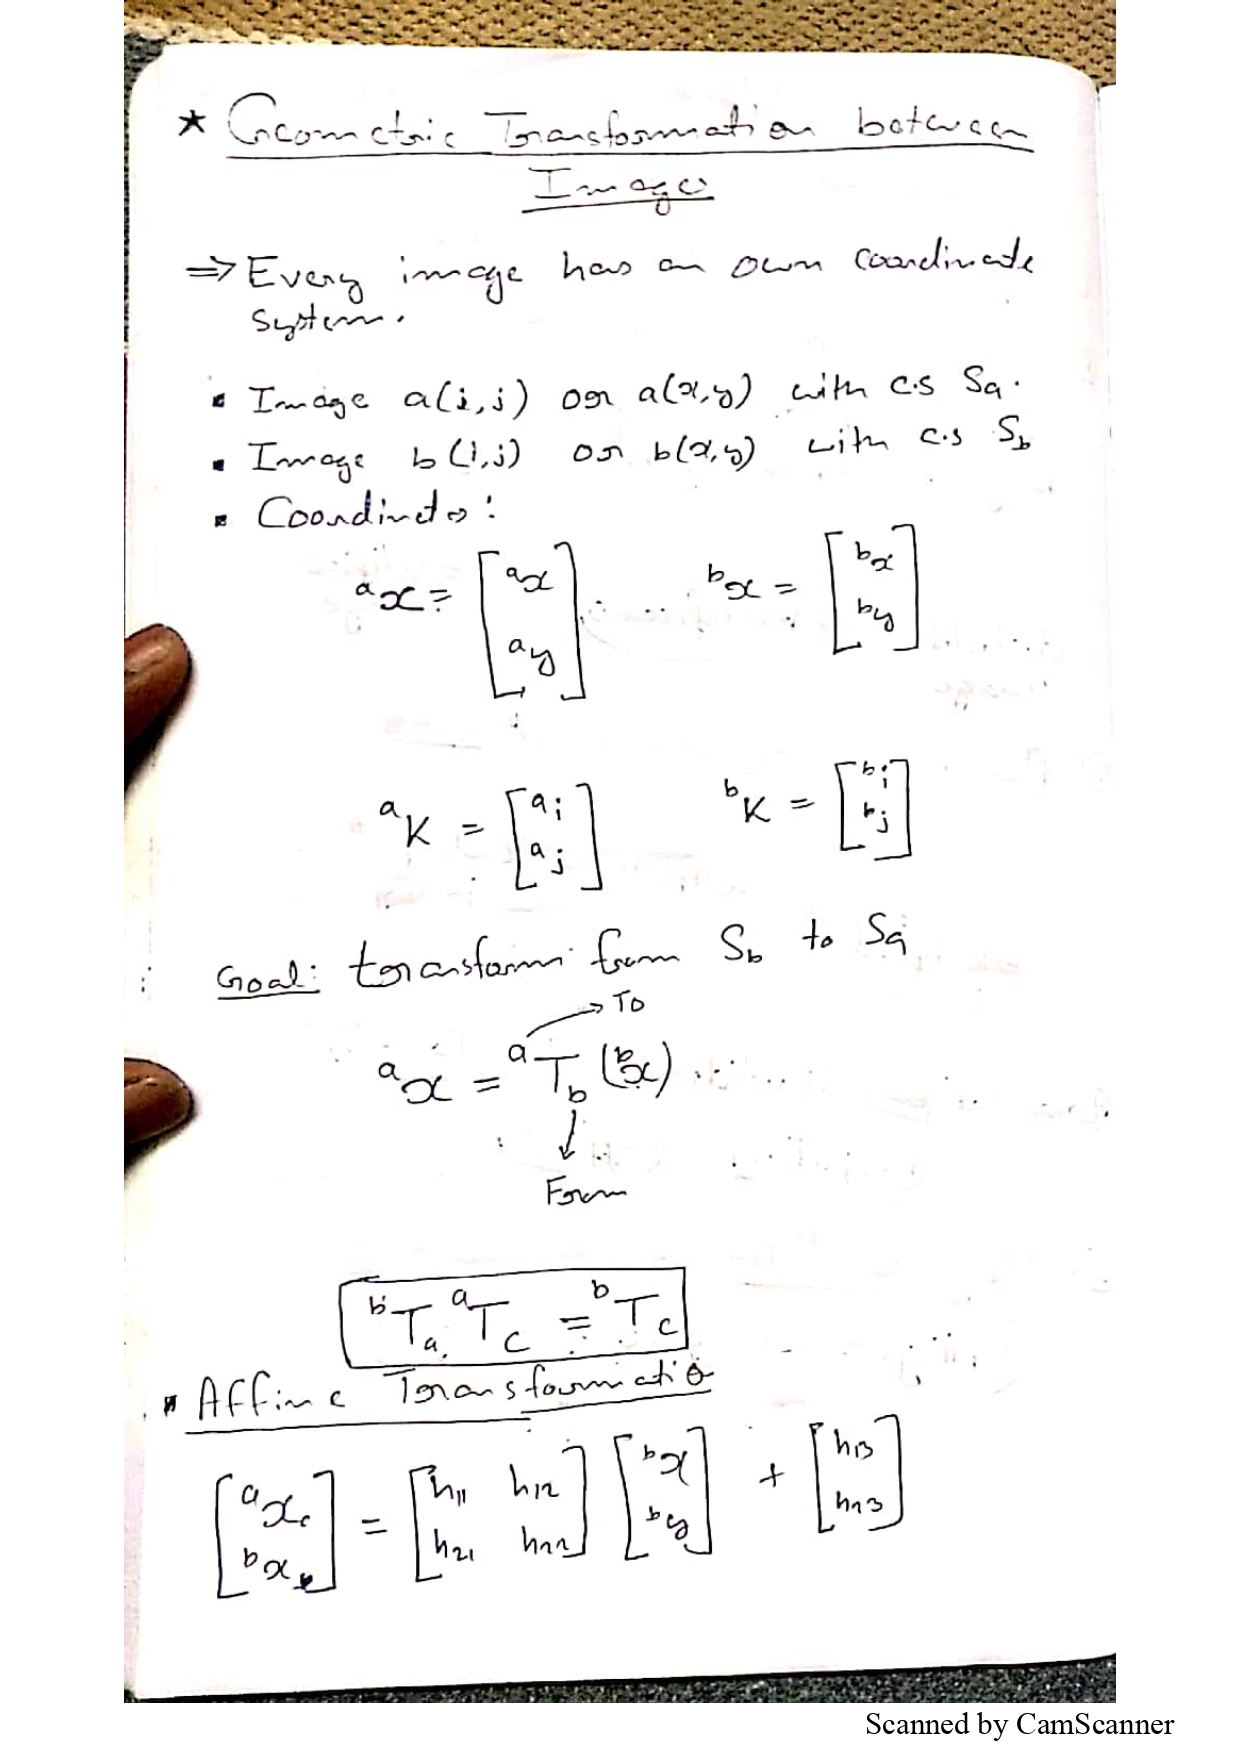 ★ Geometric Transformation between
Images
⇒ Every image has an own coordinate
system.
▪ Image a(i,j) or a(x,y) with c.s Sa.
▪ Image b(i,j) or b(x,y) with c.s Sb
▪ Coordinates:
ᵃx = [ᵃx ᵃy] ᵇx = [ᵇx ᵇy]
ᵃK = [ᵃi ᵃj] ᵇK = [ᵇi ᵇj]
Goal: transform from Sb to Sa
→ To
ᵃx = ᵃTb (ᵇx)
From
ᵇTa ᵃTc = ᵇTc
▪ Affine Transformatio
[ᵃx ᵇx] = [h11 h12 h21 h22] [ᵇx ᵇy] + [h13 h23]
Scanned by CamScanner